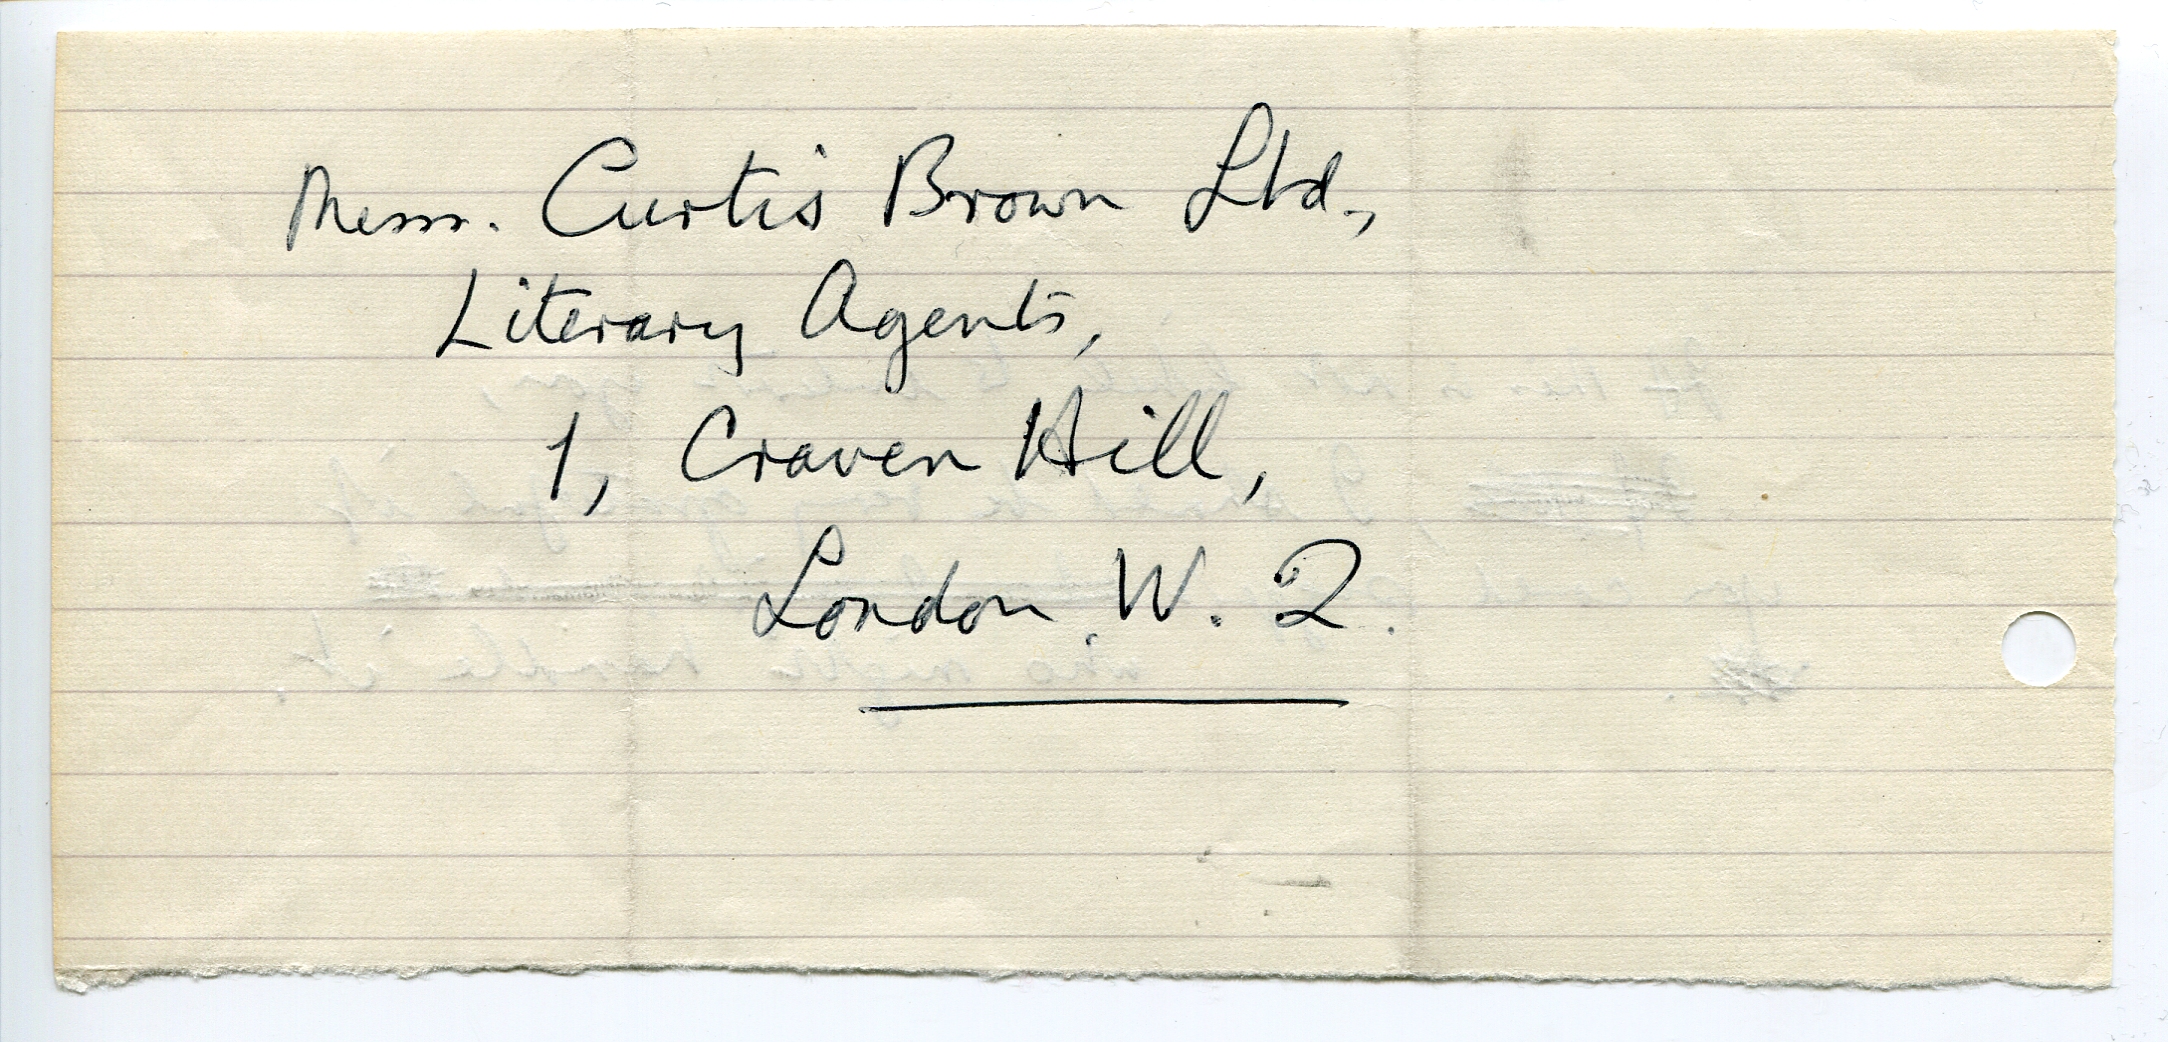 Messrs. Curtis Brown Ltd.,
Literary Agents,
1, Craven Hill,
London. W. 2.